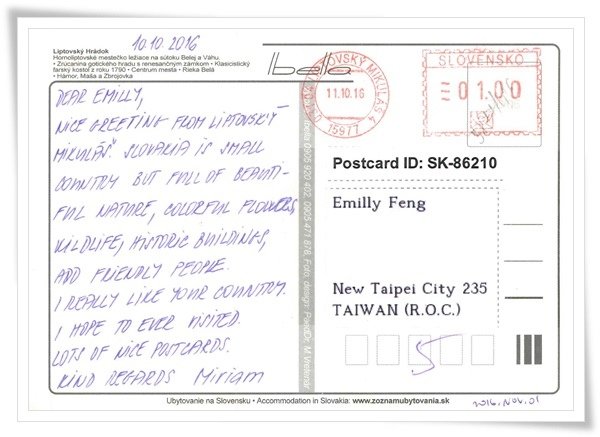 10.10.2016
Liptovský Hrádok
Hornoliptovské mestečko ležiace na sútoku Belej a Váhu.
• Zrúcanina gotického hradu s renesančným zámkom • Klasicistický
farský kostol z roku 1790 • Centrum mesta • Rieka Belá
• Hámor, Maša a Zbrojovka
DEAR EMILLY,
NICE GREETING FROM LIPTOVSKÝ
MIKULÁŠ. SLOVAKIA IS SMALL
COUNTRY BUT FULL OF BEAUTI-
FUL NATURE, COLORFUL FLOWERS,
WILDLIFE, HISTORIC BUILDINGS,
ADD FRIENDLY PEOPLE.
I REALLY LIKE YOUR COUNTRY.
I HOPE TO EVER VISITED.
LOTS OF NICE POSTCARDS.
KIND REGARDS Miriam
bela
LIPTOVSKÝ MIKULÁŠ 4
11.10.16
15977
SLOVENSKO
01.00
Postcard ID: SK-86210
Emilly Feng
New Taipei City 235
TAIWAN (R.O.C.)
5
Bela 0905 920 402, 0905 471 878, Foto, design
Ubytovanie na Slovensku • Accommodation in Slovakia: www.zoznamubytovania.sk
2016. NOV. 01